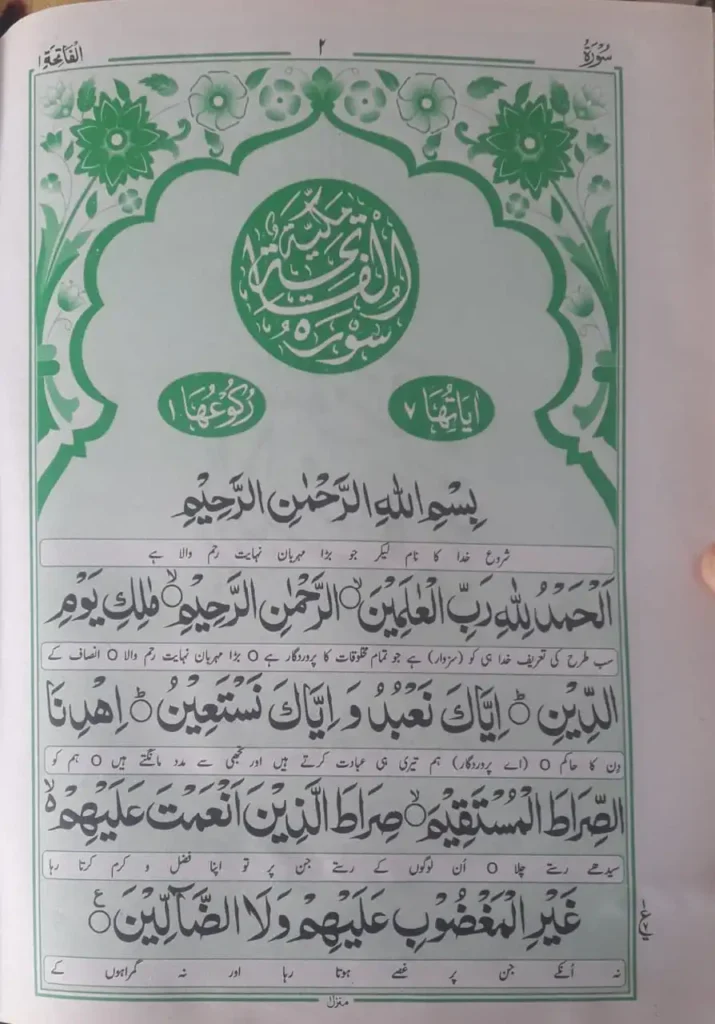 سُوْرَةُ
٢
اَلْفَاتِحَةِ ١
سُوْرَةُ الْفَاتِحَةِ مَكِّيَّة
اٰيَاتُهَا ٧
رُكُوْعُهَا ١
بِسْمِ اللّٰهِ الرَّحْمٰنِ الرَّحِيْمِ
شروع خدا کا نام لیکر جو بڑا مہربان نہایت رحم والا ہے
اَلْحَمْدُ لِلّٰهِ رَبِّ الْعٰلَمِيْنَ ۙ○ الرَّحْمٰنِ الرَّحِيْمِ ۙ○ مٰلِكِ يَوْمِ
سب طرح کی تعریف خدا ہی کو (سزوار) ہے جو تمام مخلوقات کا پروردگار ہے ○ بڑا مہربان نہایت رحم والا ○ انصاف کے
الدِّيْنِ ؕ○ اِيَّاكَ نَعْبُدُ وَ اِيَّاكَ نَسْتَعِيْنُ ؕ○ اِهْدِنَا
دن کا حاکم ○ (اے پروردگار) ہم تیری ہی عبادت کرتے ہیں اور تجھی سے مدد مانگتے ہیں ○ ہم کو
الصِّرَاطَ الْمُسْتَقِيْمَ ۙ○ صِرَاطَ الَّذِيْنَ اَنْعَمْتَ عَلَيْهِمْ ۙ۬
سیدھے رستے چلا ○ اُن لوگوں کے رستے جن پر تو اپنا فضل و کرم کرتا رہا
غَيْرِ الْمَغْضُوْبِ عَلَيْهِمْ وَلَا الضَّآلِّيْنَ ○ ع
نہ اُنکے جن پر غصے ہوتا رہا اور نہ گمراہوں کے
منزل ١